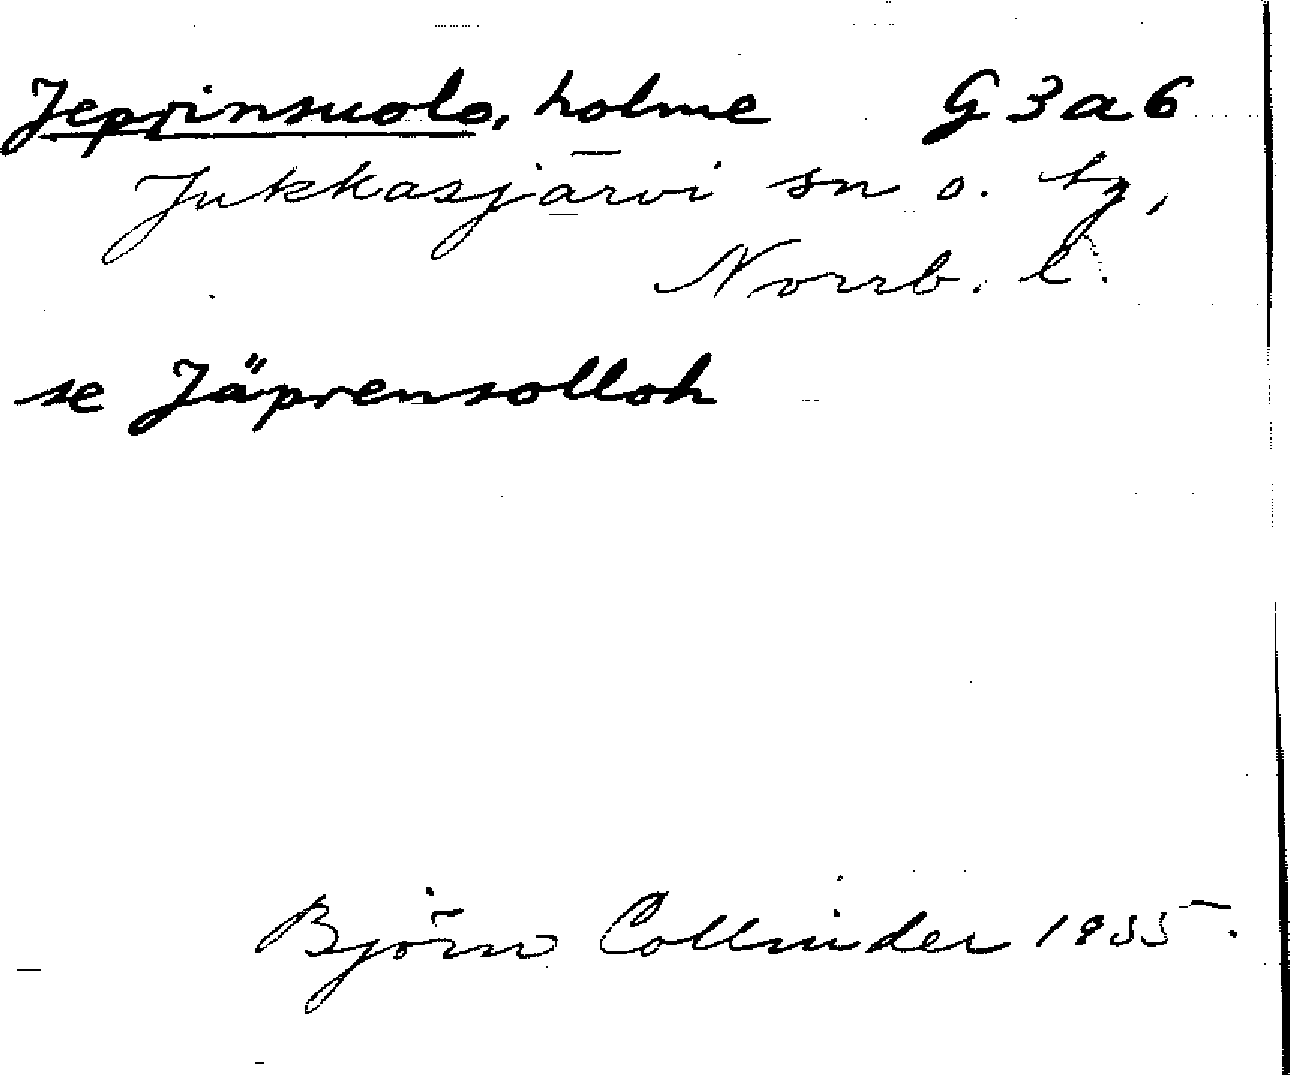 Jeprinsuolo, holme G 3 a 6
Jukkasjärvi sn o. tg,
Norrb. l.
se Jäprensolloh
Björn Collinder 1955.